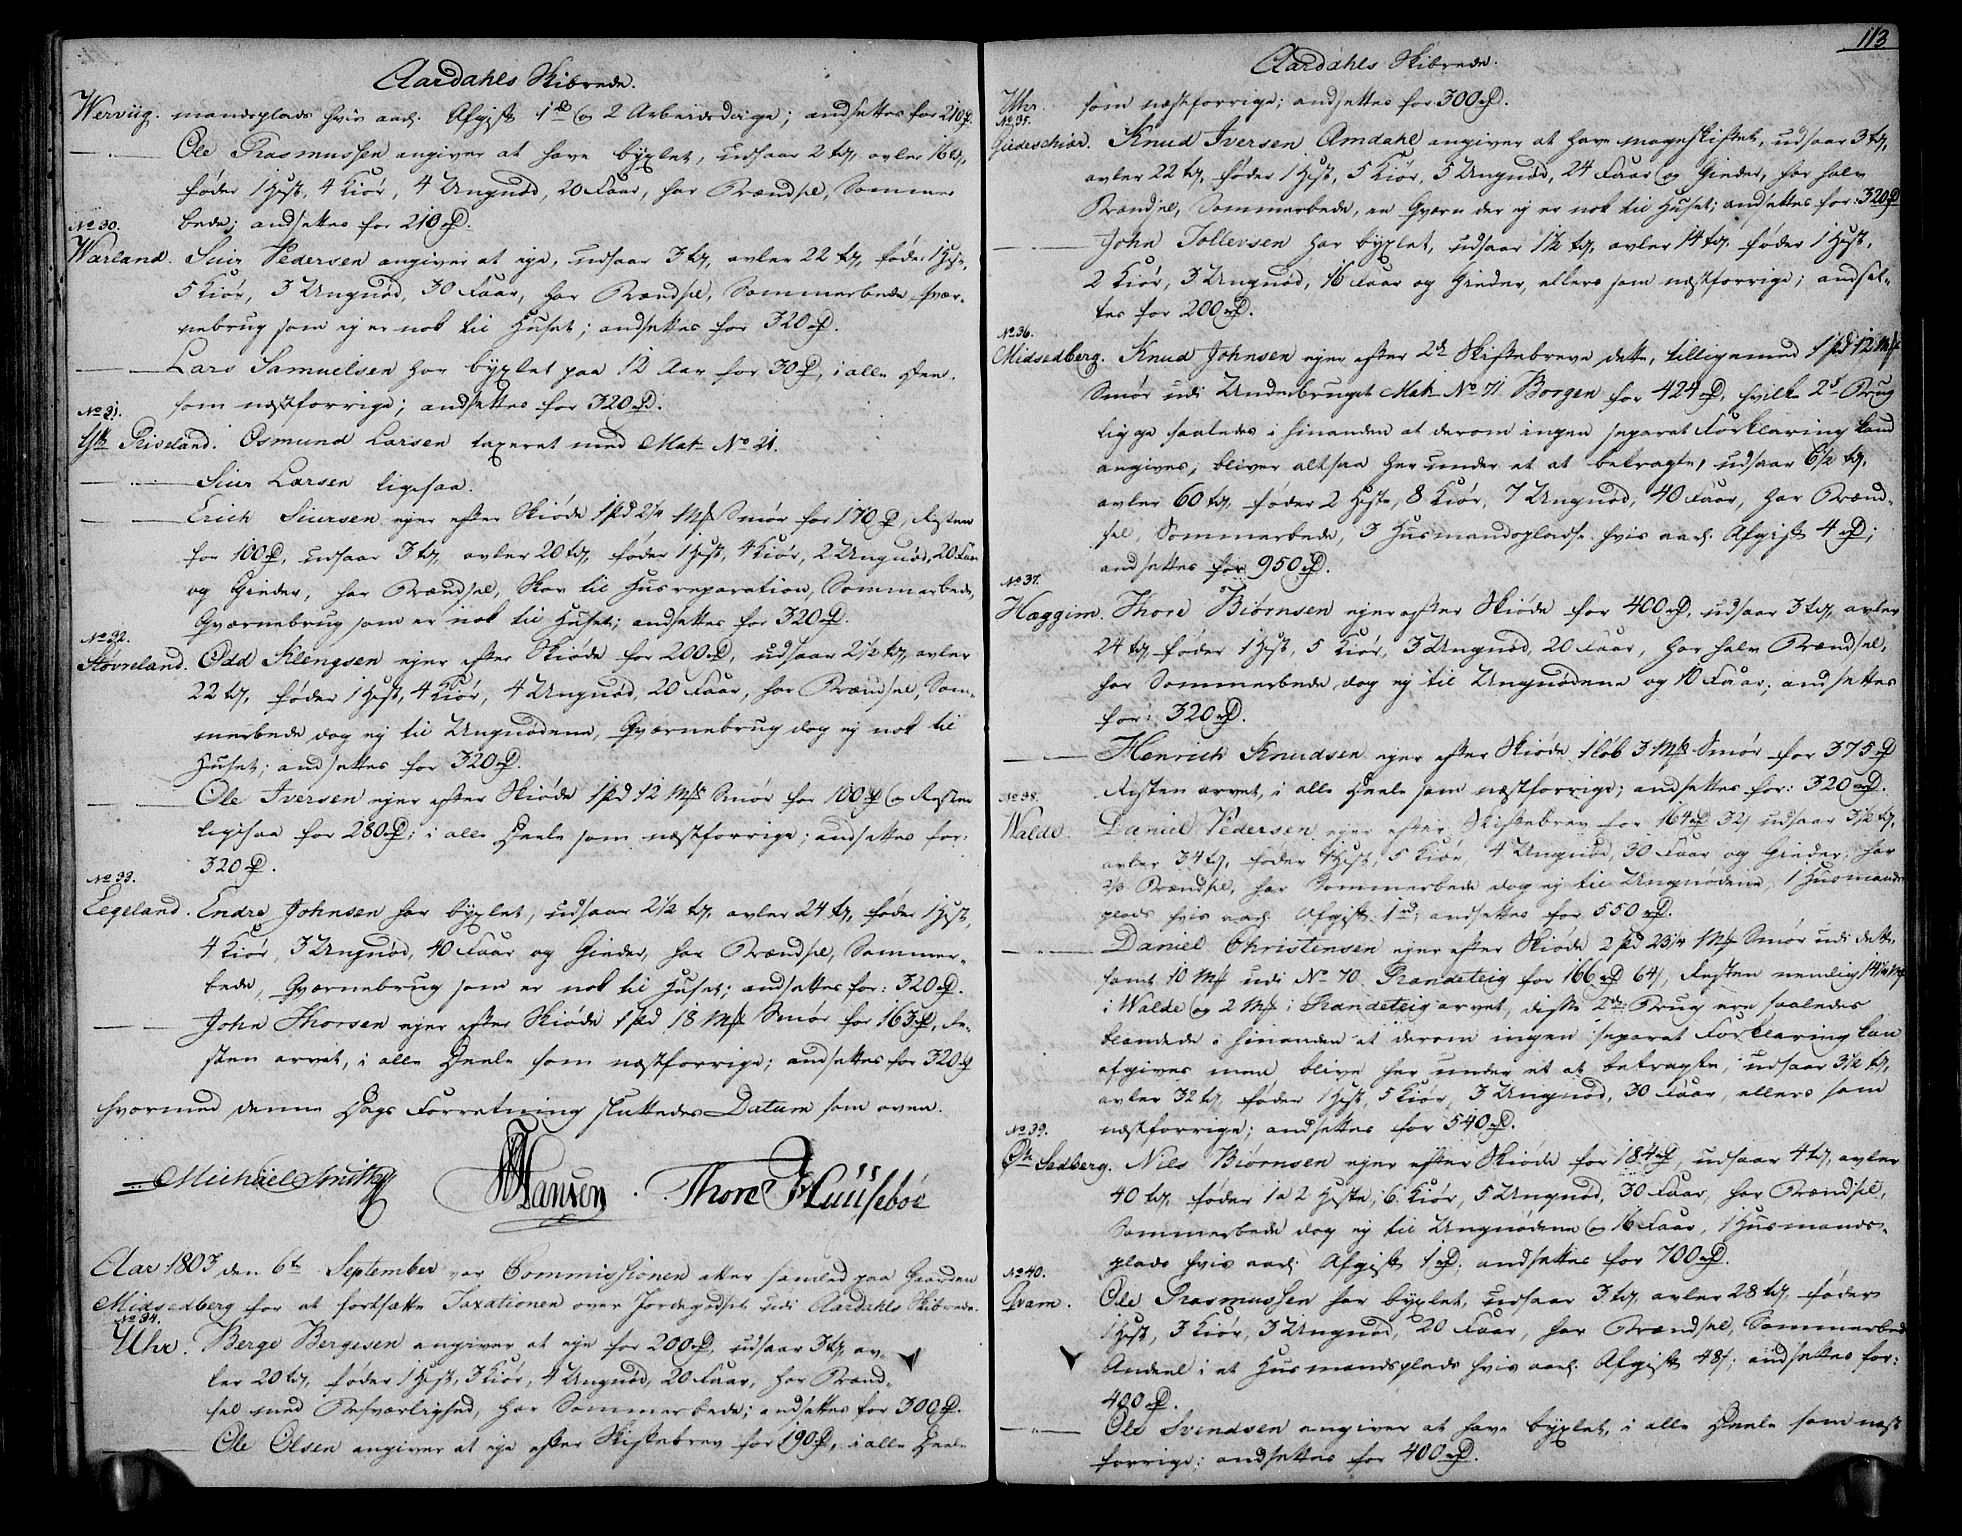 Aardahls Skibrede.
Werviig. mandsplads hvis aarl. Afgift 1 rd og 2 Arbeidsdage; andsettes for 210 rd.
Ole Rasmussen angiver at have byxlet, udsaar 2 tdr, avler 16 tdr,
føder 1 Hest, 4 Kiør, 4 Ungnød, 20 Faar, har Brændsel, Sommer
bede; andsettes for 210 rd.
No 30.
Warland. Siur Pedersen angiver at eje, udsaar 3 tdr, avler 22 tdr, føder 1 Hest,
5 Kiør, 3 Ungnød, 30 Faar, har Brændsel, Sommerbede, Qvær-
nebrug som ej er nok til Huset; andsettes for 320 rd.
Lars Samuelsen har byxlet paa 12 Aar for 30 rd, i alle Dee-
som næstforrige; andsettes for 320 rd.
No 31.
Ytr Riveland. Osmund Larsen taxeret med Mat No 21.
Siur Larsen ligesaa.
Erich Siursen ejer efter Skiøde 1 pd 2 1/4 Mk Smør for 170 rd, Resten
for 100 rd, udsaar 3 tdr, avler 20 tdr, føder 1 Hest, 4 Kiør, 2 Ungnød, 20 Faar
og Gieder, har Brændsel, Skov til Husreparation, Sommerbede,
Qværnebrug som er nok til Huset; andsettes for 320 rd.
No 32.
Støvreland. Odd Klengsen ejer efter Skiøde for 200 rd, udsaar 2 1/2 tdr, avler
22 tdr, føder 1 Hest, 4 Kiør, 4 Ungnød, 20 Faar, har Brændsel, Som-
merbede dog ej til Ungnødene, Qværnebrug dog ej nok til
Huset; andsettes for 320 rd.
Ole Iversen ejer efter Skiøde 1 pd 12 Mkr Smør for 100 rd og Resten
ligesaa for 280 rd; i alle Deele som næstforrige; andsettes for:
320 rd.
No 33.
Eegeland. Endre Johnsen har byxlet, udsaar 2 1/2 tdr, avler 24 tdr, føder 1 Hest,
4 Kiør, 3 Ungnød, 40 Faar og Gieder, har Brændsel, Sommer-
bede, Qværnebrug som er nok til Huset; andsettes for: 320 rd.
John Thorsen ejer efter Skiøde 1 pd 18 Mk Smør for 163 rd, Re-
sten arvet, i alle Deele som næstforrige; andsettes for 320 rd
hvormed denne Dags Forretning sluttedes Datum som oven.
Michael Smith Hansen. Thore Huusebøe
Aar 1803 den 6te September var Commissionen atter samled paa Gaarden
Midsedberg for at fortsætte Taxationen over Jordegodset udi Aardahls Skibrede.
No 34.
Uhr. Berge Bergesen angiver at eje for 200 rd, udsaar 3 tdr av-
ler 20 tdr, føder 1 Hest, 3 Kiør, 4 Ungnød, 20 Faar, har Brænd-
sel med Besværlighed, har Sommerbede; andsettes for 300 rd.
Ole Olsen angiver at eje efter Skiftebrev for 190 rd, i alle Deele
113
Aardahls Skibrede.
Uhr. som næstforrige; andsettes for 300 rd.
No 35.
Giedeschiær. Knud Iversen Amdahl angiver at have mageskiftet, udsaar 3 tdr,
avler 22 tdr, føder 1 Hest, 5 Kiør, 3 Ungnød, 24 Faar og Gieder, har halv
Brændsel, Sommerbede, en Qværn der ej er nok til Huset; andsettes for: 320 rd
John Tollevsen har byxlet, udsaar 1 1/2 tdr, avler 14 tdr, føder 1 Hest,
2 Kiør, 3 Ungnød, 16 Faar og Gieder, ellers som næstforrige; andset-
tes for 200 rd.
No 36.
Midsedberg. Knud Johnsen ejer efter 2de Skiftebreve dette, tilligemed 1 pd 12 Mk
Smør udi Underbruget Mat No 71 Borgen for 424 rd, hvilke 2de Brug
ligge saaledes i hinanden at derom ingen separat Forklaring kand
angives, bliver altsaa herunder et at betragte, udsaar 6 1/2 tdr,
avler 60 tdr, føder 2 Heste, 8 Kiør, 7 Ungnød, 40 Faar, har Brænd-
sel, Sommerbede, 3 Husmandspladse hvis aarl. Afgift 4 rd;
andsettes for 950 rd.
No 37.
Haggim. Thore Biørnsen ejer efter Skiøde for 400 rd, udsaar 3 tdr, avler
24 tdr, føder 1 Hest, 5 Kiør, 3 Ungnød, 20 Faar, har halv Brændsel,
har Sommerbede dog ej til Ungnødene og 10 Faar; andsettes
for: 320 rd.
Henrich Knudsen ejer efter Skiøde 1 løb 3 Mk Smør for 375 rd
Resten arvet, i alle Deele som næstforrige; andsettes for: 320 rd.
No 38.
Walde. Daniel Pedersen ejer efter Skiftebrev for 164 rd 32 s udsaar 3 1/2 tdr,
avler 34 tdr, føder 1 Hest, 5 Kiør, 4 Ungnød, 30 Faar og Gieder, har
2/3 Brændsel, har Sommerbede dog ej til Ungnødene, 1 Husmands-
plads hvis aarl. Afgift 1 rd; andsettes for 550 rd.
Daniel Christensen ejer efter Skiøde 2 pd 23 1/4 Mk Smør udi dette,
samt 10 Mk udi No 70. Grandeteig for 166 rd 64 s, Resten nemlig 14 1/4 Mk
i Walde og 2 Mk i Grandeteig arvet, disse 2de Brug ere saaledes
blandede i hinanden at derom ingen separat Forklaring kan
afgives men blive her under et at betragte, udsaar 3 1/2 tdr,
avler 32 tdr, føder 1 Hest, 5 Kiør, 3 Ungnød, 30 Faar, ellers som
næstforrige; andsettes for 540 rd.
No 39.
Sedberg. Nils Biørnsen ejer efter Skiøde for 184 rd, udsaar 4 tdr, avler
40 tdr, føder 1 a 2 Heste, 6 Kiør, 5 Ungnød, 30 Faar, har Brændsel,
Sommerbede dog ej til Ungnødene og 16 Faar, 1 Husmands-
plads hvis aarl. Afgift 1 rd; andsettes for 700 rd.
No 40.
Qvam. Ole Rasmussen har byxlet, udsaar 3 tdr, avler 28 tdr, føder
1 Hest, 3 Kiør, 3 Ungnød, 20 Faar, har Brændsel, Sommerbed
Andeel i et Husmandsplads hvis aarl. Afgift 48 s; andsettes for:
400 rd.
Ole Svendsen angiver at have byxlet, i alle Deele som næst
forrige; andsettes for 400 rd.